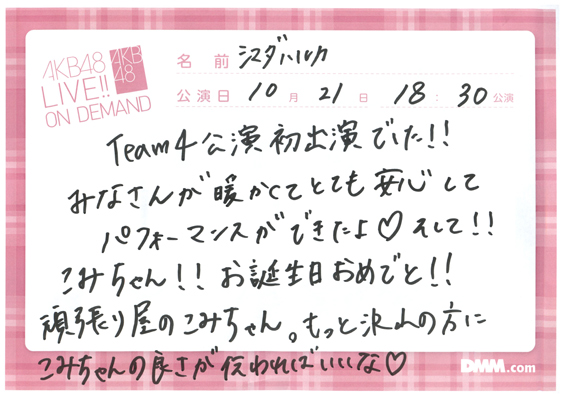 AKB48
LIVE!!
ON DEMAND
AKB
48
名 前 シマダハルカ
公演日 10月 21日 18:30公演
Team4公演初出演でした!!
みなさんが暖かくてとても安心して
パフォーマンスができたよ♡そして!!
こみちゃん!!お誕生日おめでと!!
頑張り屋のこみちゃん。もっと沢山の方に
こみちゃんの良さが伝わればいいな♡
DMM.com